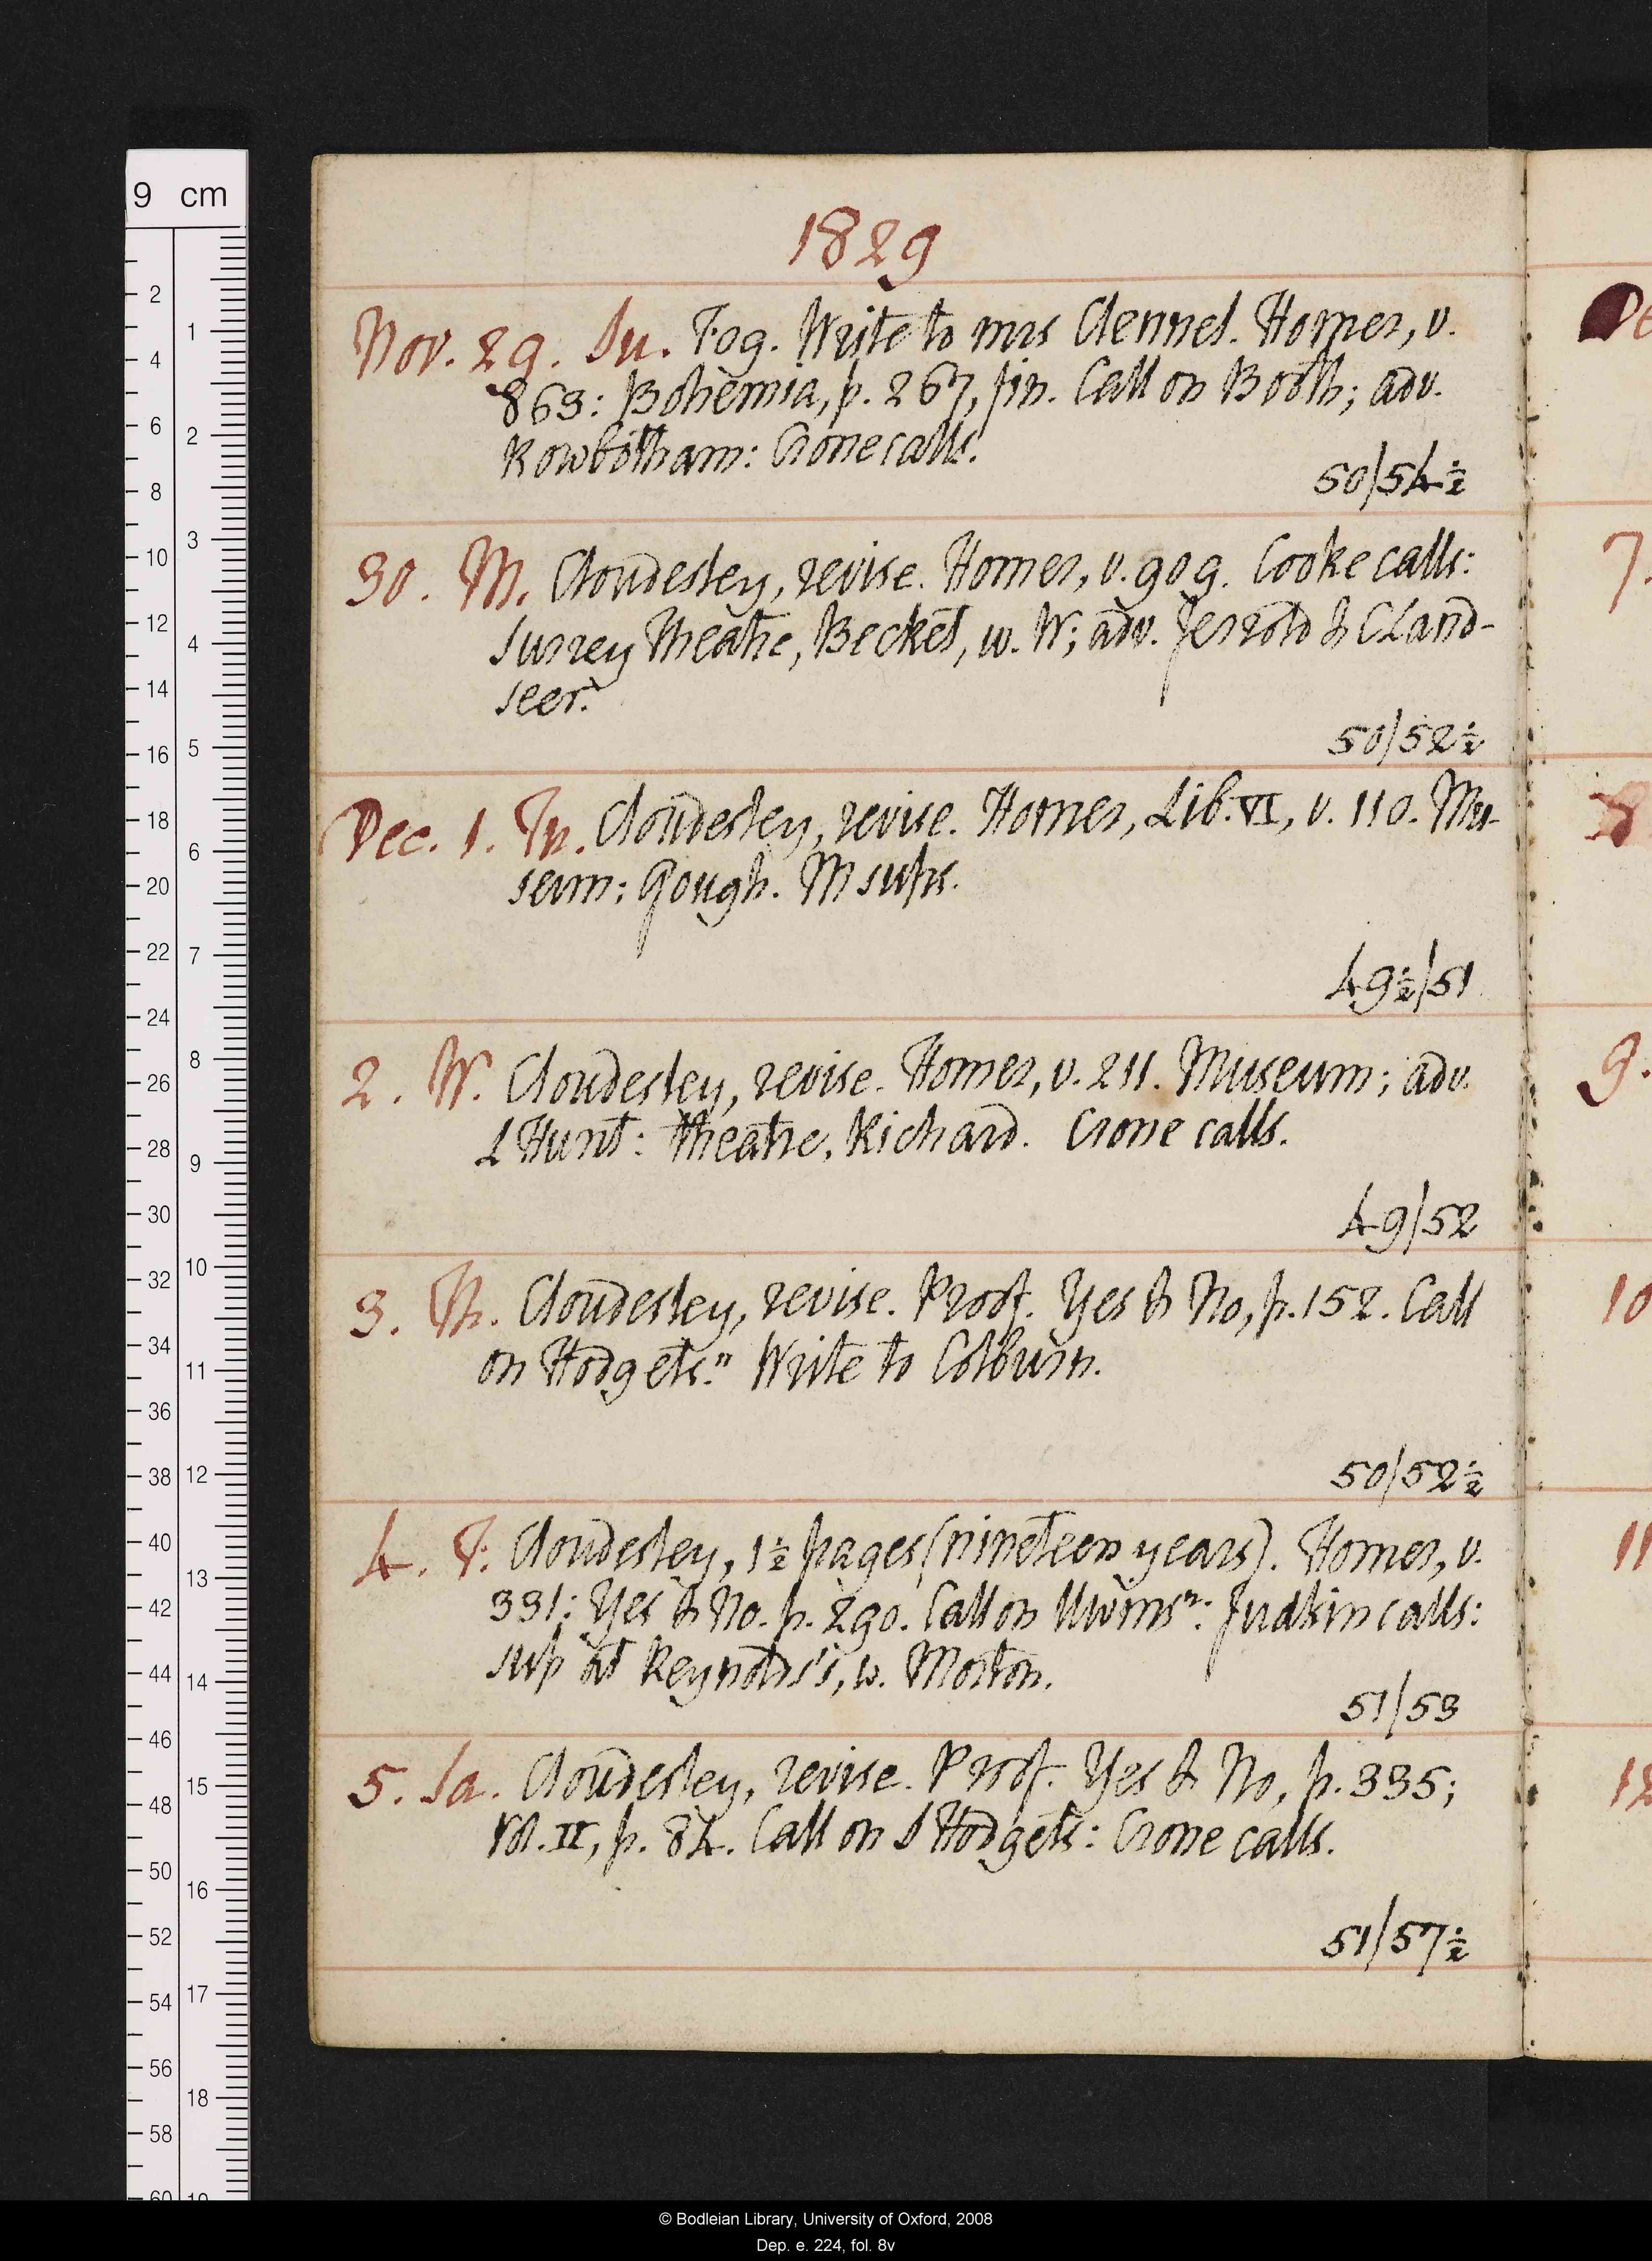 1829
Nov. 29. Su. Fog. Write to mrs Clennel. Homer, v.
863: Bohemia, p. 267, fin. Call on Booth; adv.
Rowbotham: Crone calls.
50/54½
30. M. Cloudesley, revise. Homer, v. 909. Cooke calls:
Surrey Theatre, Becket, w. W; adv. Jerrold & C Land-
seer.
50/52½
Dec. 1. Tu. Cloudesley, revise. Homer, Lib. VI, v. 110. Mu-
seum: Gough. M sups.
49½/51
2. W. Cloudesley, revise. Homer, v. 211. Museum; adv.
L Hunt: theatre, Richard. Crone calls.
49/52
3. Th. Cloudesley, revise. Proof. Yes & No, p. 152. Call
on Hodgets.n Write to Colburn.
50/52½
4. F. Cloudesley, 1½ pages (nineteen years). Homer, v.
331: Yes & No. p. 290. Call on Uwins n: Judkin calls:
sup at Reynolds's, w. Morton.
51/53
5. Sa. Cloudesley, revise. Proof. Yes & No, p. 335;
Vol. II, p. 84. Call on S Hodgets: Crone calls.
51/57½
De
7.
8
9.
10
11
12
9 cm
© Bodleian Library, University of Oxford, 2008
Dep. e. 224, fol. 8v